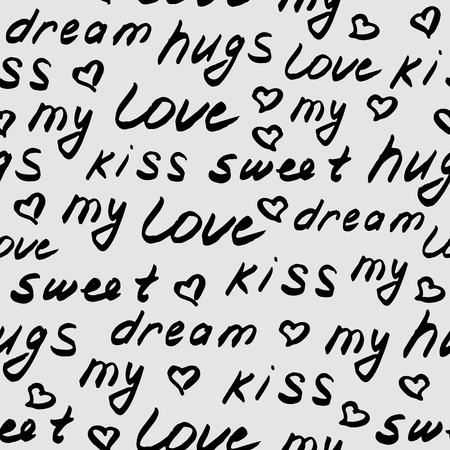 love my
dream hugs love kis
ss my love my
gs kiss sweet hug
my love dream
love lo
sweet kiss my
ugs dream my hu
my kiss
eet love my swe